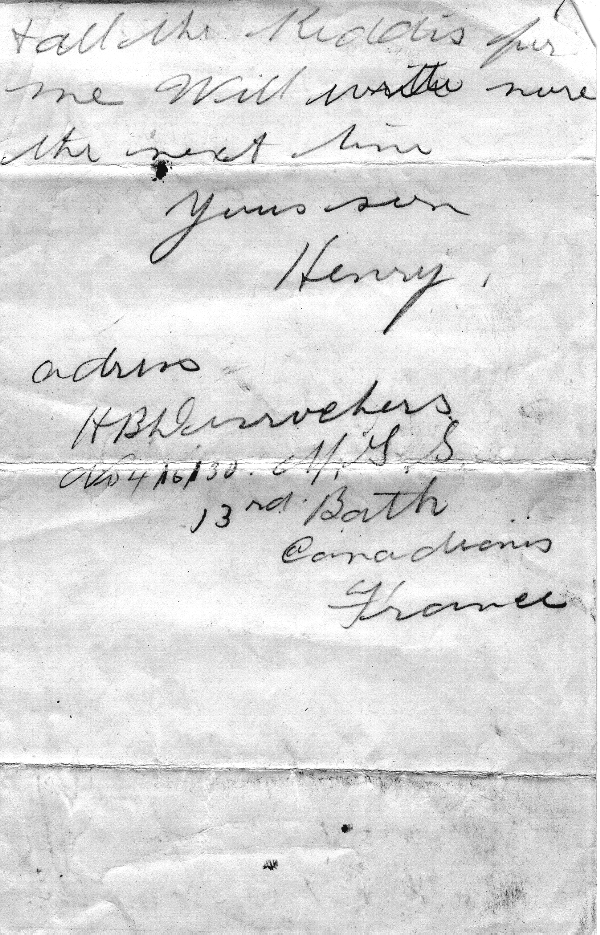 + all the Kiddis for
me Will write more
the next time
Yours son
Henry.
adress
H B Durochers
No 416130. M. G. S.
13rd. Batth
Canadians
France